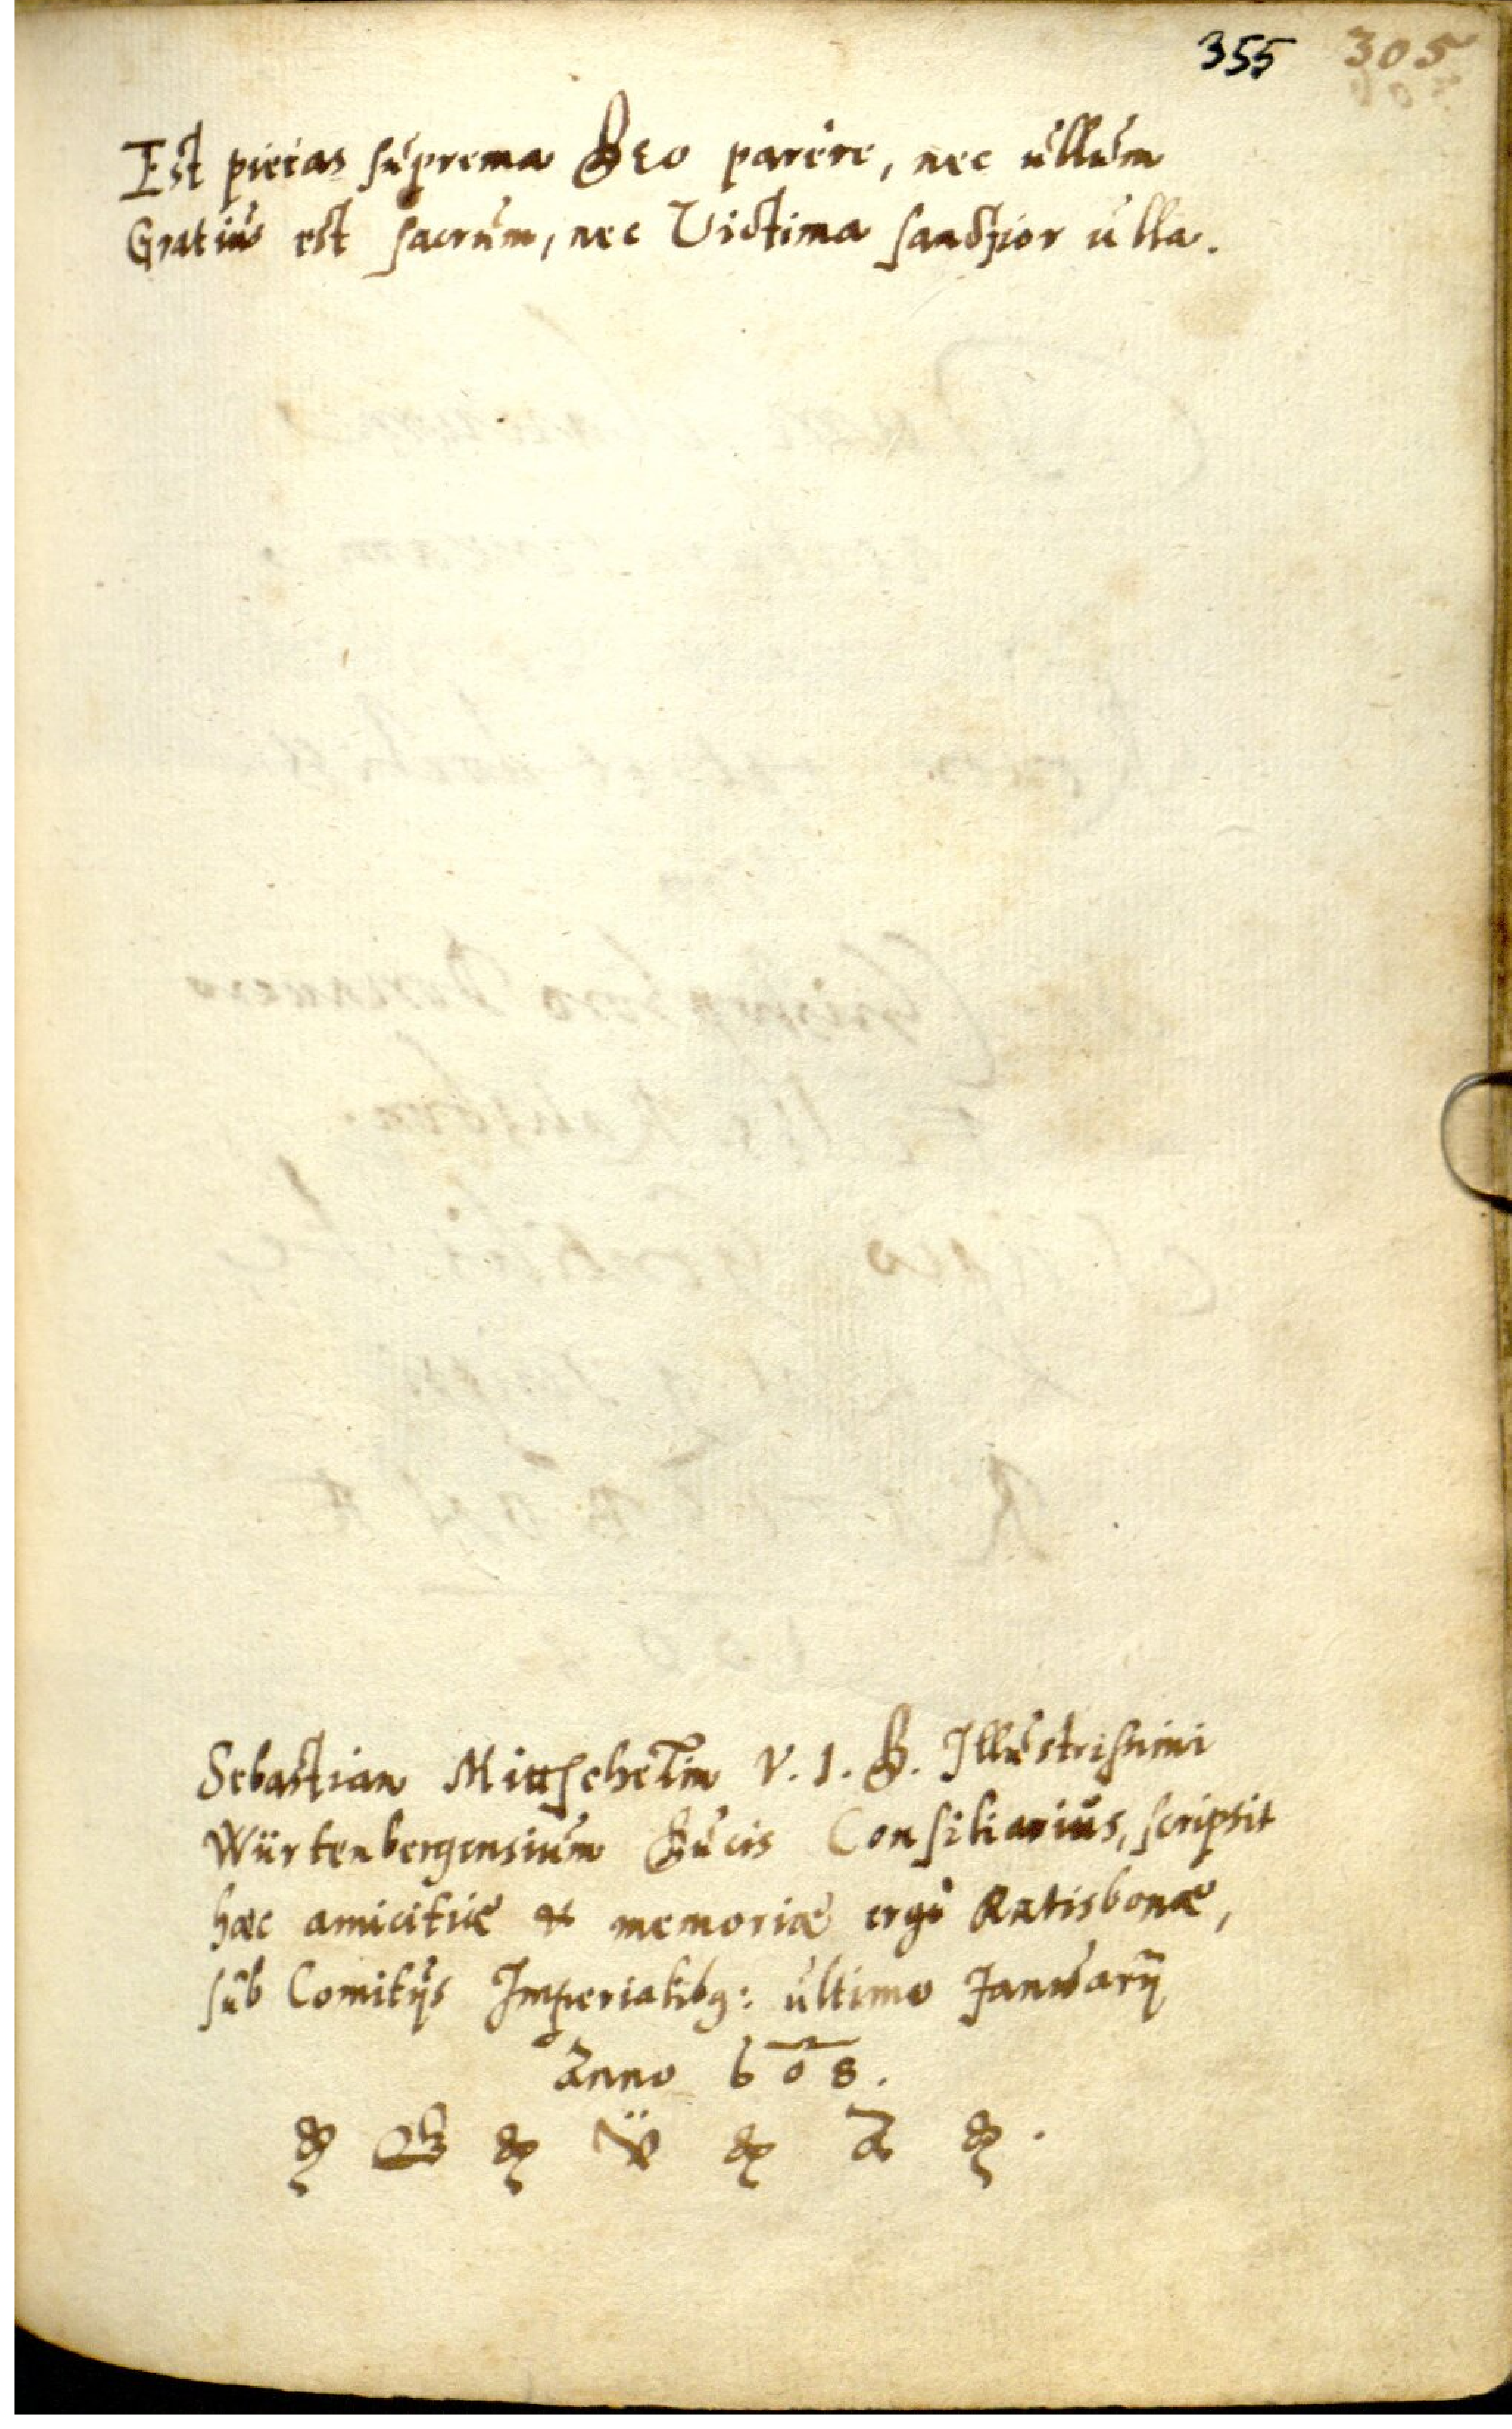 355 305
Est pietas suprema Deo parere, nec ullum
Gratius est sacrum, nec Victima sanctior ulla.
Sebastian Mittschelin V. I. D. Illustrissimi
Würtenbergensium Ducis Consiliarius, scripsit
hæc amicitiæ & memoriæ ergò Ratisbonæ,
sub Comitijs Imperialibg: ultimo Januarij
Anno 608.